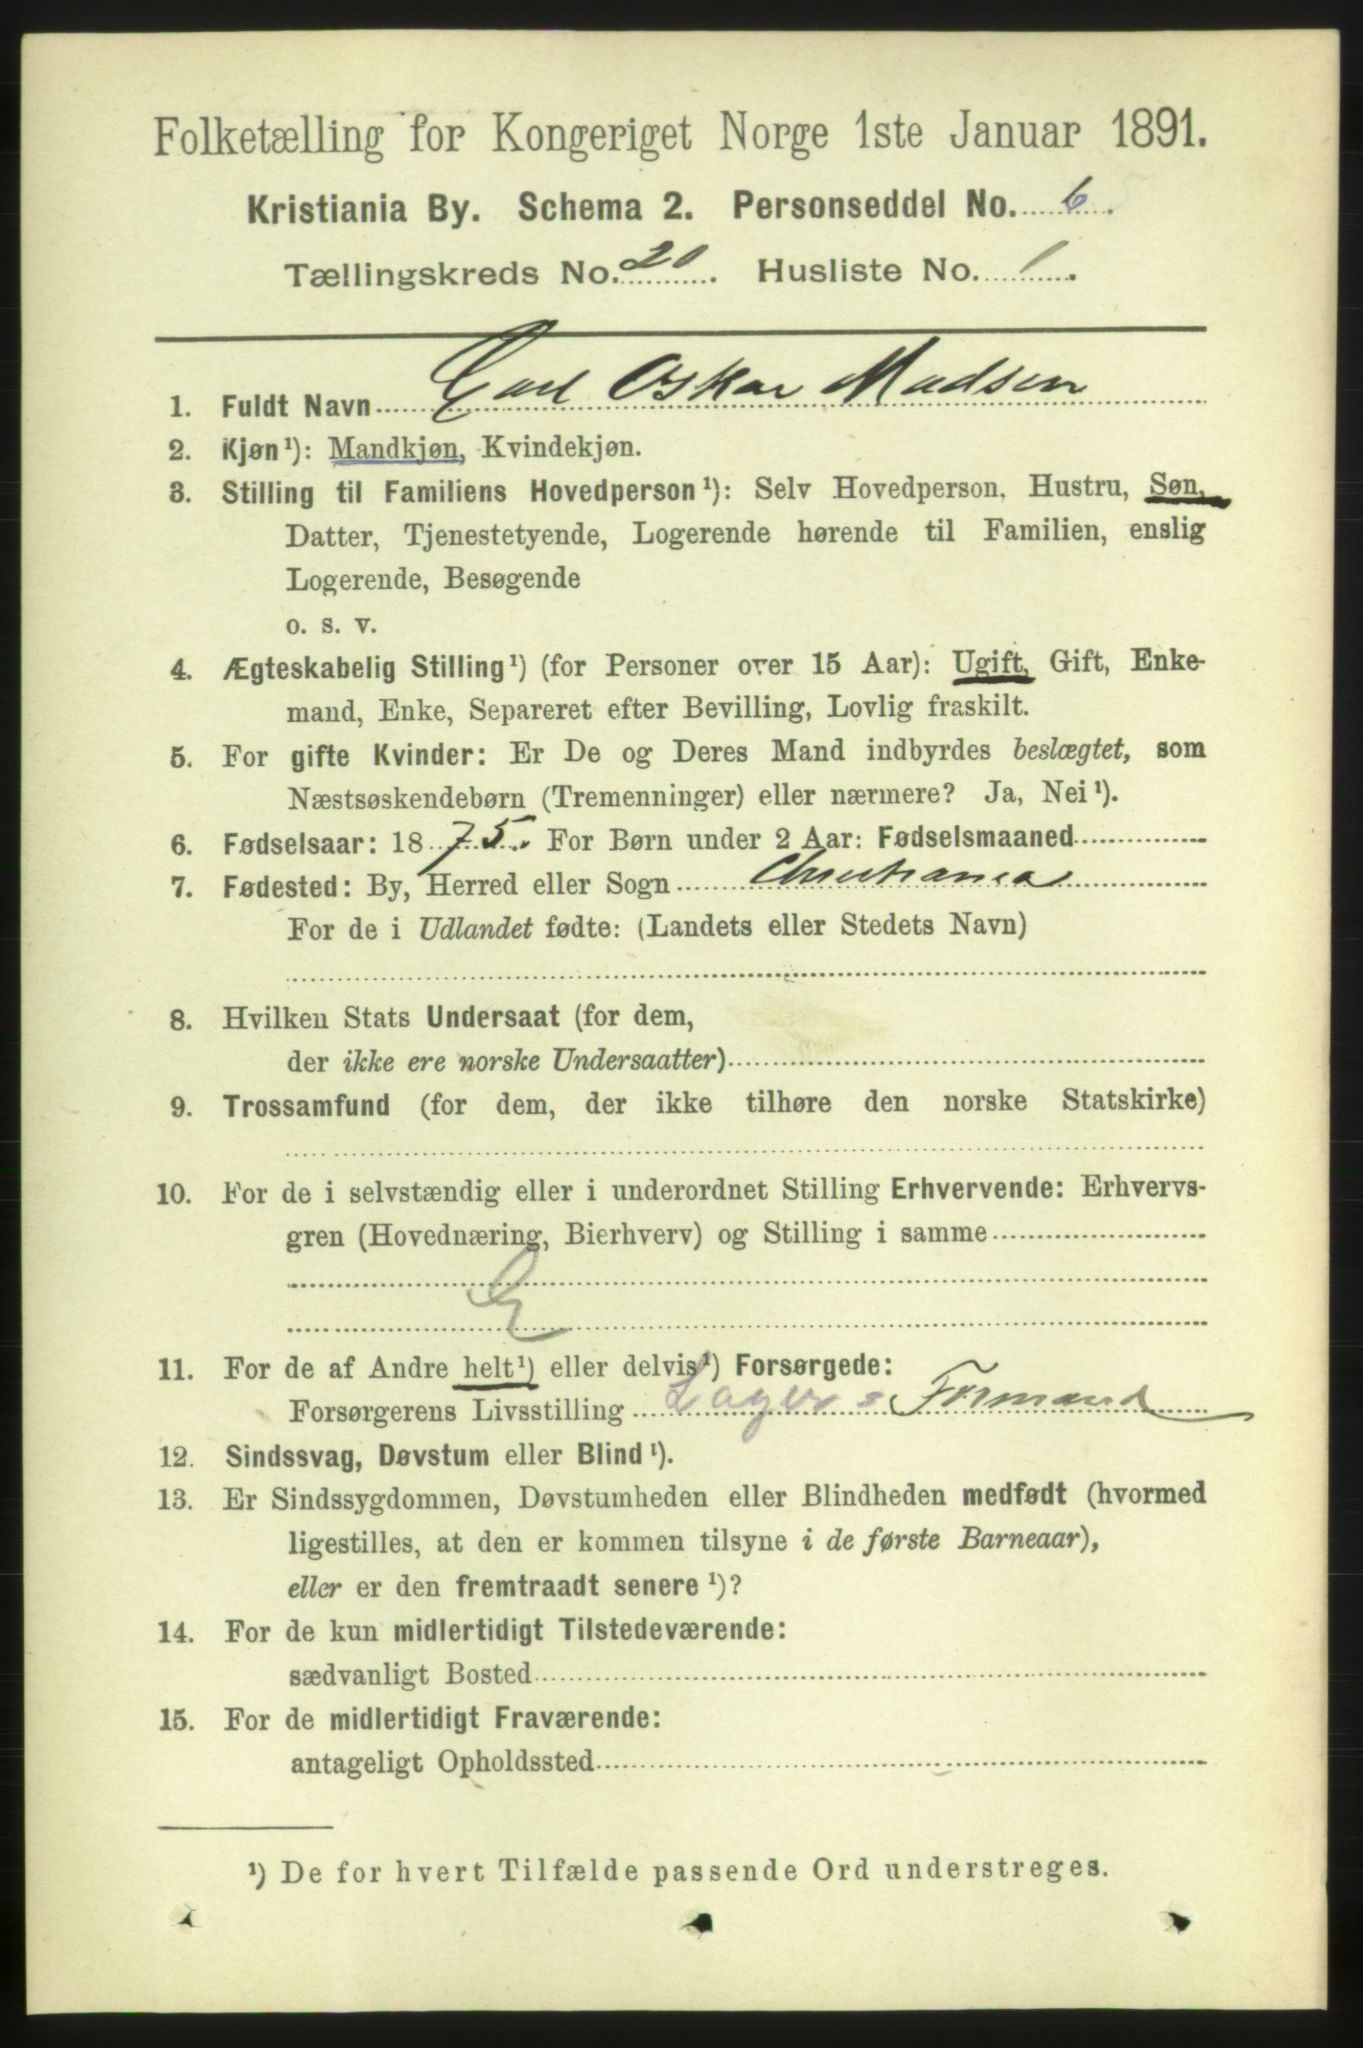 Folketælling for Kongeriget Norge 1ste Januar 1891.
Kristiania By. Schema 2. Personseddel No. 6.
Tællingskreds No. 20. Husliste No. 1.
1. Fuldt Navn Carl Oskar Madsen
2. Kjøn¹): Mandkjøn, Kvindekjøn.
3. Stilling til Familiens Hovedperson¹): Selv Hovedperson, Hustru, Søn,
Datter, Tjenestetyende, Logerende hørende til Familien, enslig
Logerende, Besøgende
o. s. v.
4. Ægteskabelig Stilling¹) (for Personer over 15 Aar): Ugift, Gift, Enke-
mand, Enke, Separeret efter Bevilling, Lovlig fraskilt.
5. For gifte Kvinder: Er De og Deres Mand indbyrdes beslægtet, som
Næstsøskendebørn (Tremenninger) eller nærmere? Ja, Nei¹).
6. Fødselsaar: 1875. For Børn under 2 Aar: Fødselsmaaned
7. Fødested: By, Herred eller Sogn Christiania
For de i Udlandet fødte: (Landets eller Stedets Navn)
8. Hvilken Stats Undersaat (for dem,
der ikke ere norske Undersaatter)
9. Trossamfund (for dem, der ikke tilhøre den norske Statskirke)
10. For de i selvstændig eller i underordnet Stilling Erhvervende: Erhvervs-
gren (Hovednæring, Bierhverv) og Stilling i samme
11. For de af Andre helt¹) eller delvis¹) Forsørgede:
Forsørgerens Livsstilling Lager = Formand
12. Sindssvag, Døvstum eller Blind¹).
13. Er Sindssygdommen, Døvstumheden eller Blindheden medfødt (hvormed
ligestilles, at den er kommen tilsyne i de første Barneaar),
eller er den fremtraadt senere¹)?
14. For de kun midlertidigt Tilstedeværende:
sædvanligt Bosted
15. For de midlertidigt Fraværende:
antageligt Opholdssted
¹) De for hvert Tilfælde passende Ord understreges.